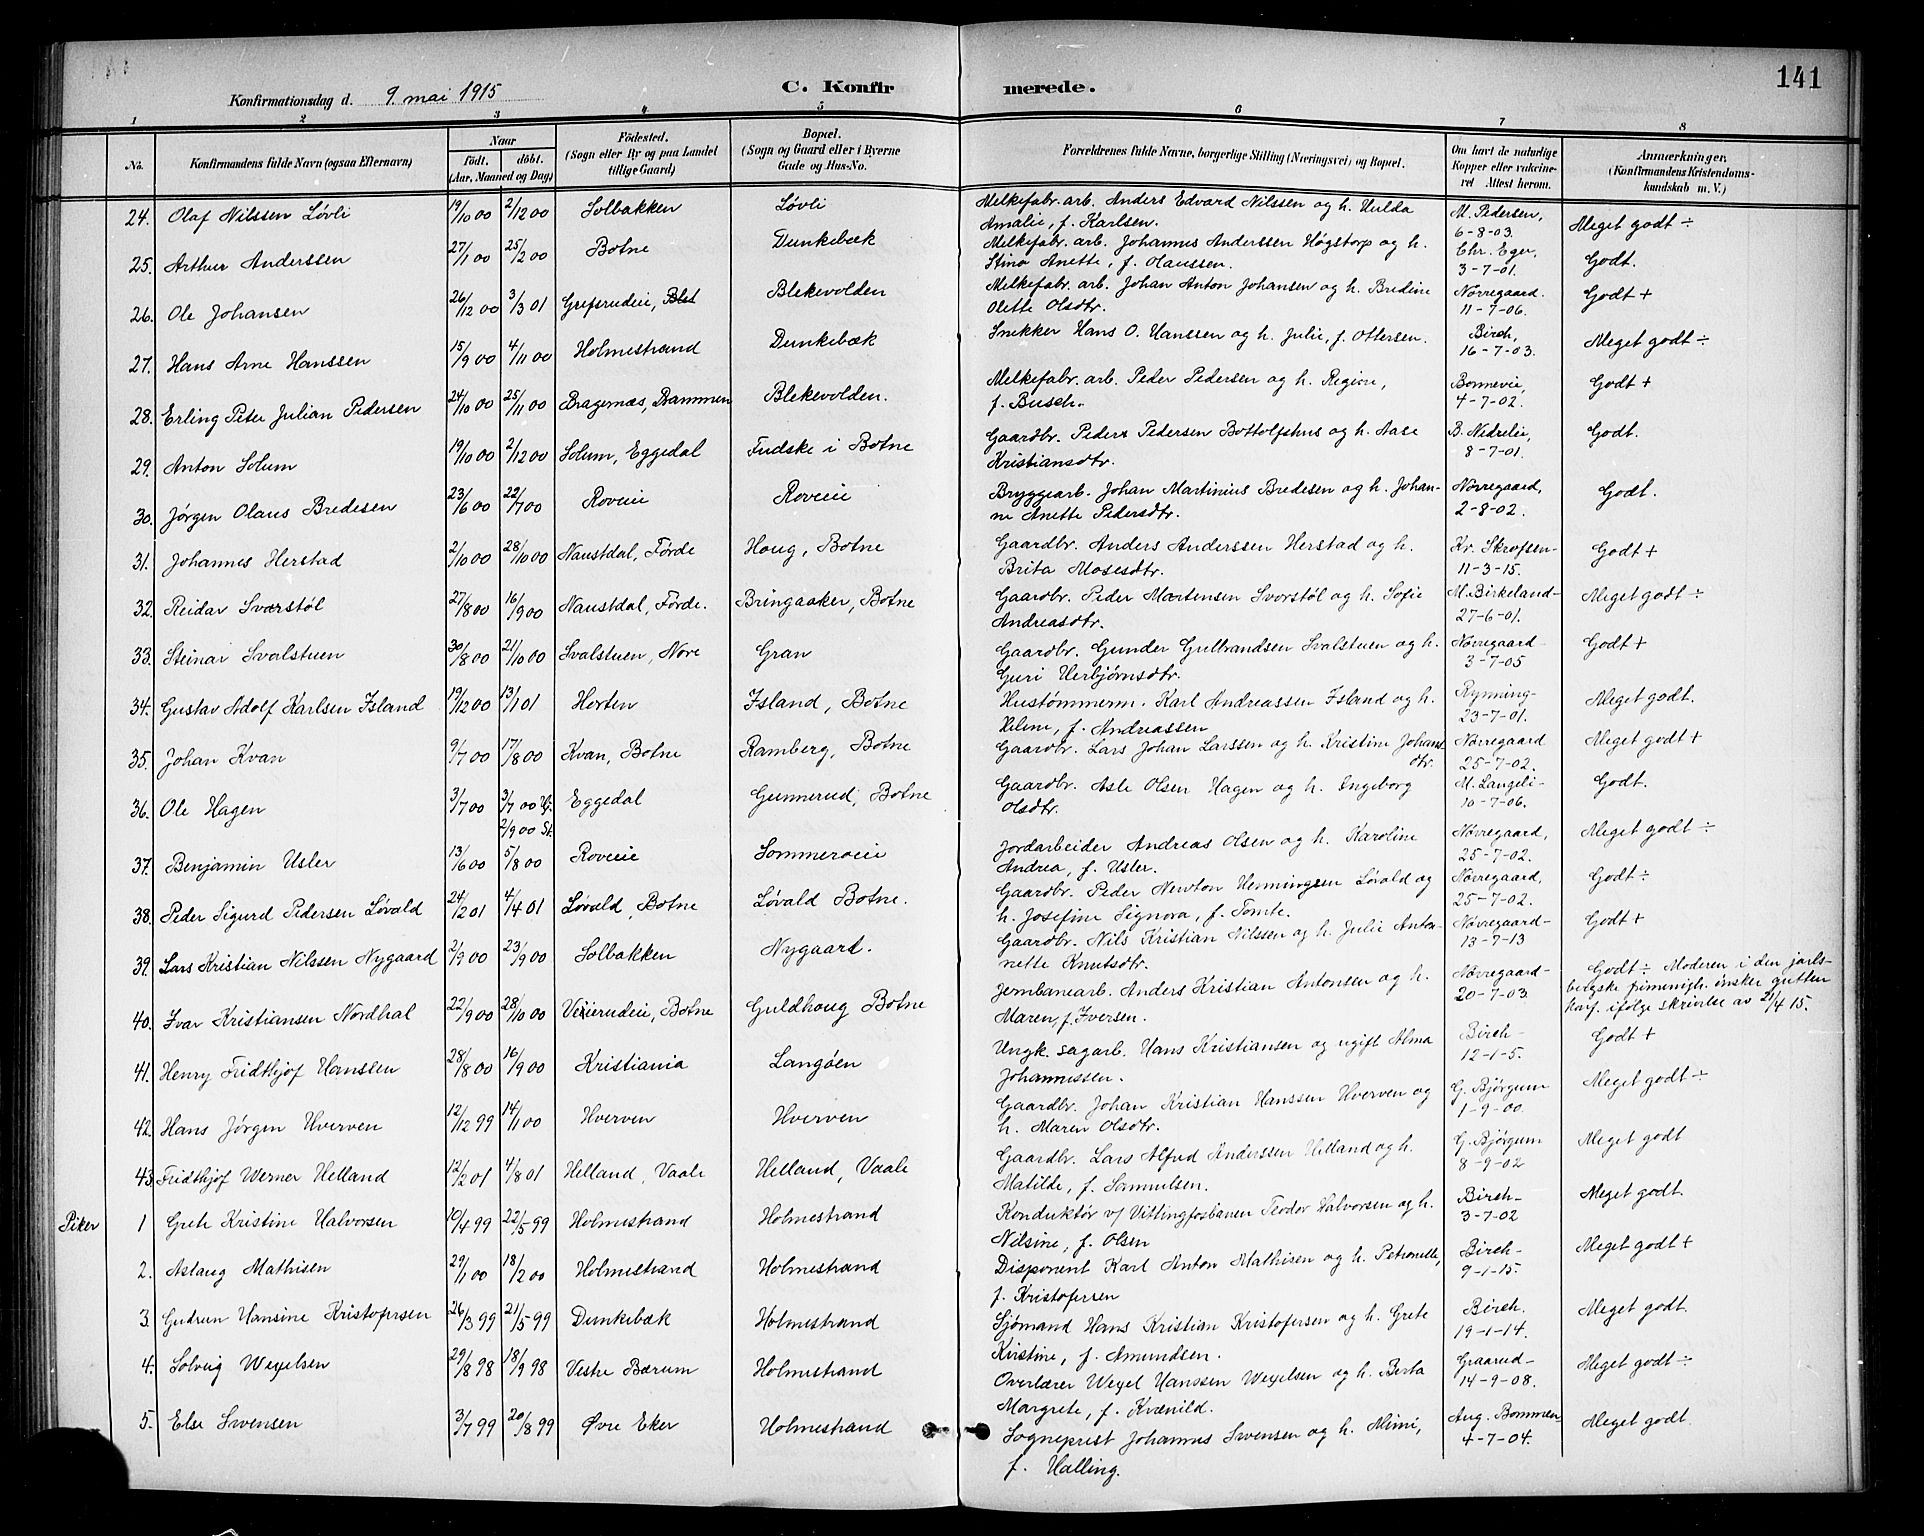 141
Konfirmationsdag d. 9. mai 1915 C. Konfirmerede.
1 2 3 4 5 6 7 8
No. Konfirmandens fulde Navn (ogsaa Efternavn) Naar født. døbt. (Aar, Maaned og Dag) Fødested. (Sogn eller By og paa Landet tillige Gaard) Bopæl. (Sogn og Gaard eller i Byerne Gade og Hus-No. Forældrenes fulde Navne, borgerlige Stilling (Næringsvei) og Bopæl. Om havt de naturlige Kopper eller vakcineret Attest herom. Anmærkninger. (Konfirmandens Kristendomskundskab m. V.)
24. Olaf Nilssen Løvli 19/10 00 2/12 00 Solbakken Løvli Melkefabr. arb. Anders Edvard Nilssen og h. Hulda Amalie, f. Karlsen. M. Pedersen, 6-8-03. Meget godt ÷
25. Arthur Anderssen 27/1 00 25/2 00 Botne Dunkebæk Melkefabr. arb. Johannes Anderssen Høgstorp og h. Stina Anette, f. Olaussen. Chr. Eger, 3-7-01. Godt.
26. Ole Johansen 26/12 00 3/3 01 Grefsrudeie, Blekevolden Melkefabr. arb. Johan Anton Johansen og h. Bredine Olette Olsdtr. Nørregaard. 11-7-06. Godt +
27. Hans Arne Hanssen 15/9 00 4/11 00 Holmestrand Dunkebæk Snekker Hans O. Hanssen og h. Julie, f. Ottersen. Birch, 16-7-03. Meget godt ÷
28. Erling Peter Julian Pedersen 24/10 00 25/11 00 Bragernæs, Drammen Blekevolden. Melkefabr. arb. Peder Pedersen og h. Regine, f. Busch. Bonnevie, 4-7-02. Godt +
29. Anton Solum 19/10 00 2/12 00 Solum, Eggedal Fudske i Botne Gaardbr. Peder Pedersen Bottolfshus og h. Aase Kristiansdtr. B. Nedrelie, 8-7-01. Godt.
30. Jørgen Olaus Bredesen 23/6 00 22/7 00 Roveie Roveie Bryggearb. Johan Martinius Bredesen og h. Johanne Anette Pedersdtr. Nørregaard, 2-8-02. Godt.
31. Johannes Herstad 2/10 00 28/10 00 Naustdal, Førde Houg, Botne Gaardbr. Anders Anderssen Herstad og h. Brita Mosesdtr. Kr. Skrefsen- 11-3-15. Godt +
32. Reidar Sværstøl 27/8 00 16/9 00 Naustdal, Førde. Bringaaker, Botne Gaardbr. Peder Martensen Svorstøl og h. Sofie Andreasdtr. M. Birkeland- 27-6-01. Meget godt ÷
33. Steinar Svalstuen 30/8 00 21/10 00 Svalstuen, Nore Gran Gaardbr. Gunder Gulbrandsen Svalstuen og h. Guri Herbjørnsdtr. Nørregaard- 3-7-05 Godt +
34. Gustav Adolf Karlsen Island 19/12 00 13/1 01 Horten Island, Botne Hustømmerm. Karl Andreassen Island og h. Helene, f. Andreassen Rynning- 23-7-01. Meget godt.
35. Johan Kvan 9/7 00 17/8 00 Kvan, Botne Ramberg, Botne Gaardbr. Lars Johan Larssen og h. Kristine Johansdtr. Nørregaard 25-7-02. Meget godt +
36. Ole Hagen 3/7 00 3/7 00 Hj. 2/9 00 St. Eggedal Gunnerud, Botne Gaardbr. Asle Olsen Hagen og h. Ingeborg Olsdtr. M. Langeli- 10-7-06. Godt.
37. Benjamin Usler 13/6 00 5/8 00 Roveie Sommerveie Jordarbeider Andreas Olsen og h. Karoline Andrea, f. Usler. Nørregaard, 25-7-02. Meget godt ÷
38. Peder Sigurd Pedersen Løvald 24/2 01 4/14 01 Løvald, Botne Løvald Botne. Gaardbr. Peder Newton Henningsen Løvald og h. Josefine Signora, f. Tomte. Nørregaard, 25-7-02. Godt ÷
39. Lars Kristian Nilssen Nygaard 2/9 00 23/9 00 Solbakken Nygaard. Gaardbr. Nils Kristian Nilssen og h. Julie Antonette Knutsdtr. Nørregaard- 13-7-13 Godt +
40. Ivar Kristiansen Nordhal 22/9 00 28/10 00 Veierudeie, Botne Guldhoug Botne Jernbanearb. Anders Kristian Antonsen og h. Maren, f. Iversen. Nørregaard- 20-7-03. Godt ÷ Moderen i den jarlsbergske frimenigh. ønsker gutten konf. ifølge skrivelse av 21/4 15.
41. Henry Fridthjof Hanssen 28/8 00 16/9 00 Kristiania Langøen Ungk. sagarb. Hans Kristiansen og ugift Alma Johannessen. Birch- 12-1-5. Godt +
42. Hans Jørgen Hverven 12/12 99 14/1 00 Hverven Hverven Gaardbr. Johan Kristian Hanssen Hverven og h. Maren Olsdtr. G. Bjørgum 1-9-00. Meget godt ÷
43. Fridthjof Werner Helland 12/2 01 4/8 01 Helland, Vaale Helland, Vaale Gaardbr. Lars Alfred Anderssen Helland og h. Matilde, f. Samuelsen. G. Bjørgum 8-9-02 Meget godt
Piker 1 Grete Kristine Halvorsen 10/4 99 22/5 99 Holmestrand Holmestrand Konduktør v/ Vittingfosbanen Teodor Halvorsen og h. Nilsine, f. Olsen Birch- 3-7-02 Meget godt.
2. Aslaug Mathisen 29/1 00 18/2 00 Holmestrand Holmestrand Disponent Karl Anton Mathisen og h. Petronelle, f. Kristofersen Birch- 9-1-15. Meget godt +
3. Gudrun Hansine Kristofersen 26/3 99 21/5 99 Dunkebæk Holmestrand Sjømand Hans Kristian Kristofersen og h. Grete Kirstine, f. Amundsen. Birch. 19-1-14. Meget godt.
4. Solveig Wexelsen 29/8 98 18/9 98 Vestre Bærum Holmestrand Overlærer Wexel Hanssen Wexelsen og h. Berta Margrete, f. Kvænild. Graarud- 14-9-08. Meget godt ÷
5. Else Svensen 3/7 99 20/8 99 Øvre Eker Holmestrand Sogneprest Johannes Svensen og h. Mimi, f. Halling. Aug. Bommen 4-7-04. Meget godt.